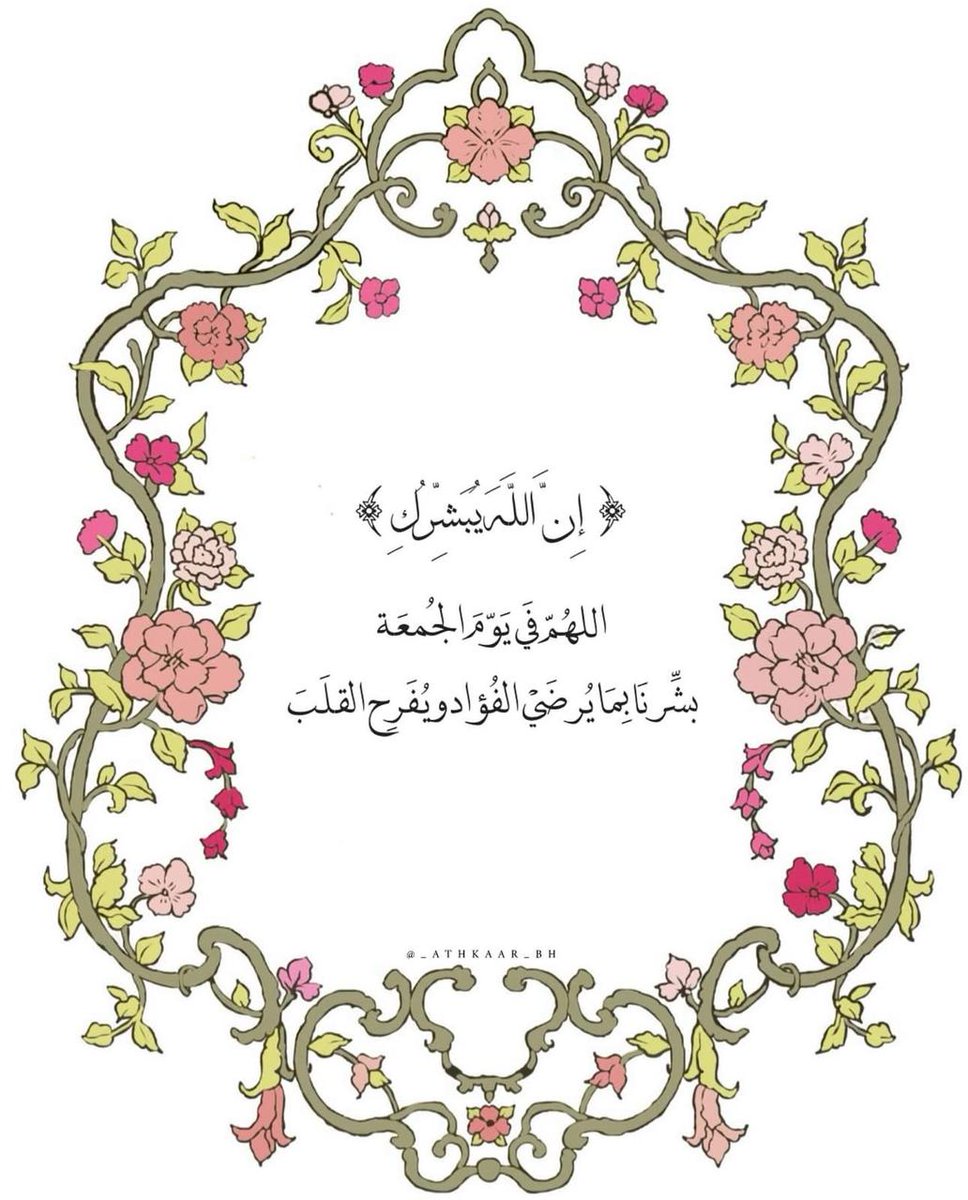 ﴿ إِنَّ اللَّهَ يُبَشِّرُكِ ﴾
اللهُمّ فَي يَوّمَ الجُمعَة
بشِّرنَا بِمَا يُرضَيْ الفُؤاد ويُفَرِح القلَبَ
@_ATHKAAR_BH